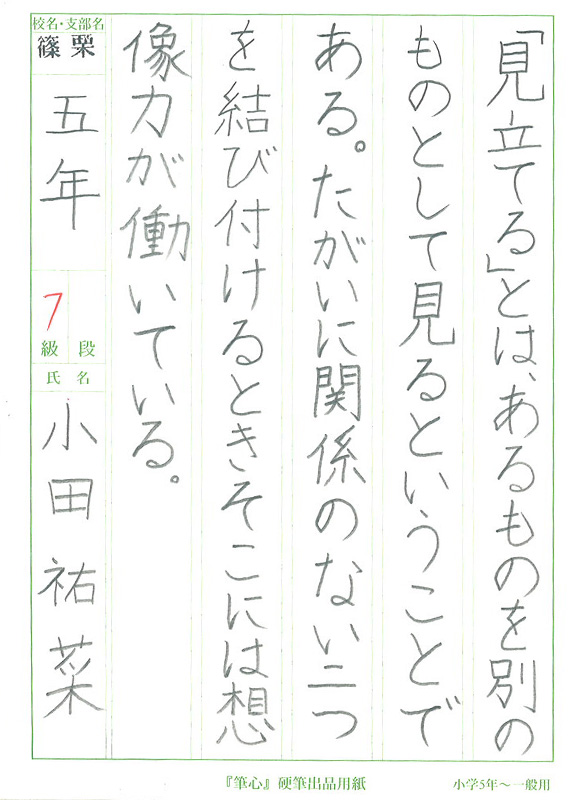 「見立てる」とは、あるものを別の
ものとして見るということで
ある。たがいに関係のない二つ
を結び付けるときそこには想
像力が働いている。
校名・支部名
篠栗
五年
7
級 段
氏名
小田祐菜
『筆心』硬筆出品用紙
小学5年〜一般用